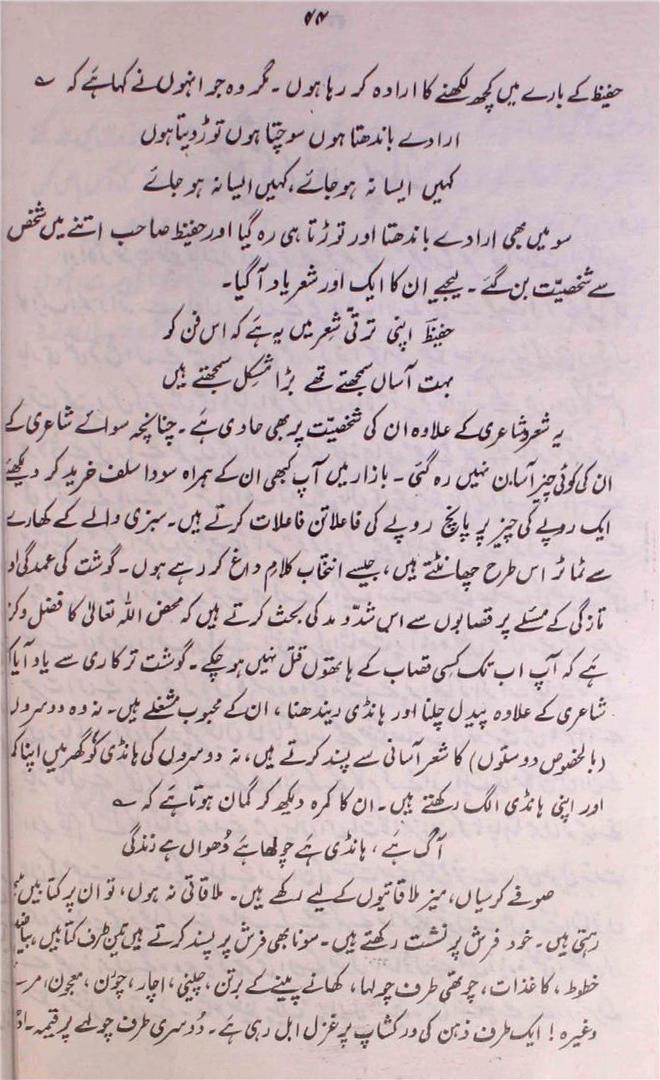 ۴۴
حفیظ کے بارے میں کچھ لکھنے کا ارادہ کر رہا ہوں ۔ مگر وہ جو انہوں نے کہا ہے کہ ؎
ارادے باندھتا ہوں سوچتا ہوں توڑ دیتا ہوں
کہیں ایسا نہ ہو جائے، کہیں ایسا نہ ہو جائے
سو میں بھی ارادے باندھتا اور توڑتا ہی رہ گیا اور حفیظ صاحب اتنے میں شخص
سے شخصیّت بن گئے ۔ لیجیے ان کا ایک اور شعر یاد آ گیا۔
حفیظؔ اپنی ترقیِّ شعر میں یہ ہے کہ اس فن کو
بہت آساں سمجھتے تھے بڑا مشکل سمجھتے ہیں
یہ شعر شاعری کے علاوہ ان کی شخصیّت پر بھی حاوی ہے ۔ چنانچہ سوائے شاعری کے
ان کی کوئی چیز آسان نہیں رہ گئی ۔ بازار میں آپ کبھی ان کے ہمراہ سودا سلف خرید کر دیکھئے
ایک روپے کی چیز پر پانچ روپے کی فاعلاتن فاعلات کرتے ہیں۔ سبزی والے کے کھارے
سے ٹماٹر اس طرح چھانٹتے ہیں، جیسے انتخاب کلامِ داغ کر رہے ہوں ۔ گوشت کی عمدگی او
تازگی کے مسئلے پر قصابوں سے اس شدّ و مد کی بحث کرتے ہیں کہ محض اللہ تعالیٰ کا فضل و کر
ہے کہ آپ اب تک کسی قصاب کے ہاتھوں قتل نہیں ہو چکے ۔ گوشت ترکاری سے یاد آیا ک
شاعری کے علاوہ پیدل چلنا اور ہانڈی ریندھنا ، ان کے محبوب مشغلے ہیں۔ نہ وہ دوسرو
(بالخصوص دوستوں) کا شعر آسانی سے پسند کرتے ہیں، نہ دوسروں کی ہانڈی کو گھر میں اپنا کم
اور اپنی ہانڈی الگ رکھتے ہیں ۔ ان کا کمرہ دیکھ کر گمان ہوتا ہے کہ ؎
آگ ہے ، ہانڈی ہے چولھا ہے دُھواں ہے زندگی
صوفے کرسیاں، میز ملاقاتیوں کے لیے رکھے ہیں۔ ملاقاتی نہ ہوں، تو ان پر کتابیں
رہتی ہیں۔ خود فرش پر نشست رکھتے ہیں ۔ سونا بھی فرش پر پسند کرتے ہیں تین طرف کتابیں،
خطوط ، کاغذات ، چوتھی طرف چولہا، کھانے پینے کے برتن ، چینی ، اچار ، چورن ، معجون، مرـ
وغیرہ ! ایک طرف ذہن کی ورکشاپ پر غزل ابل رہی ہے ۔ دُوسری طرف چولہے پر قیمہ ۔